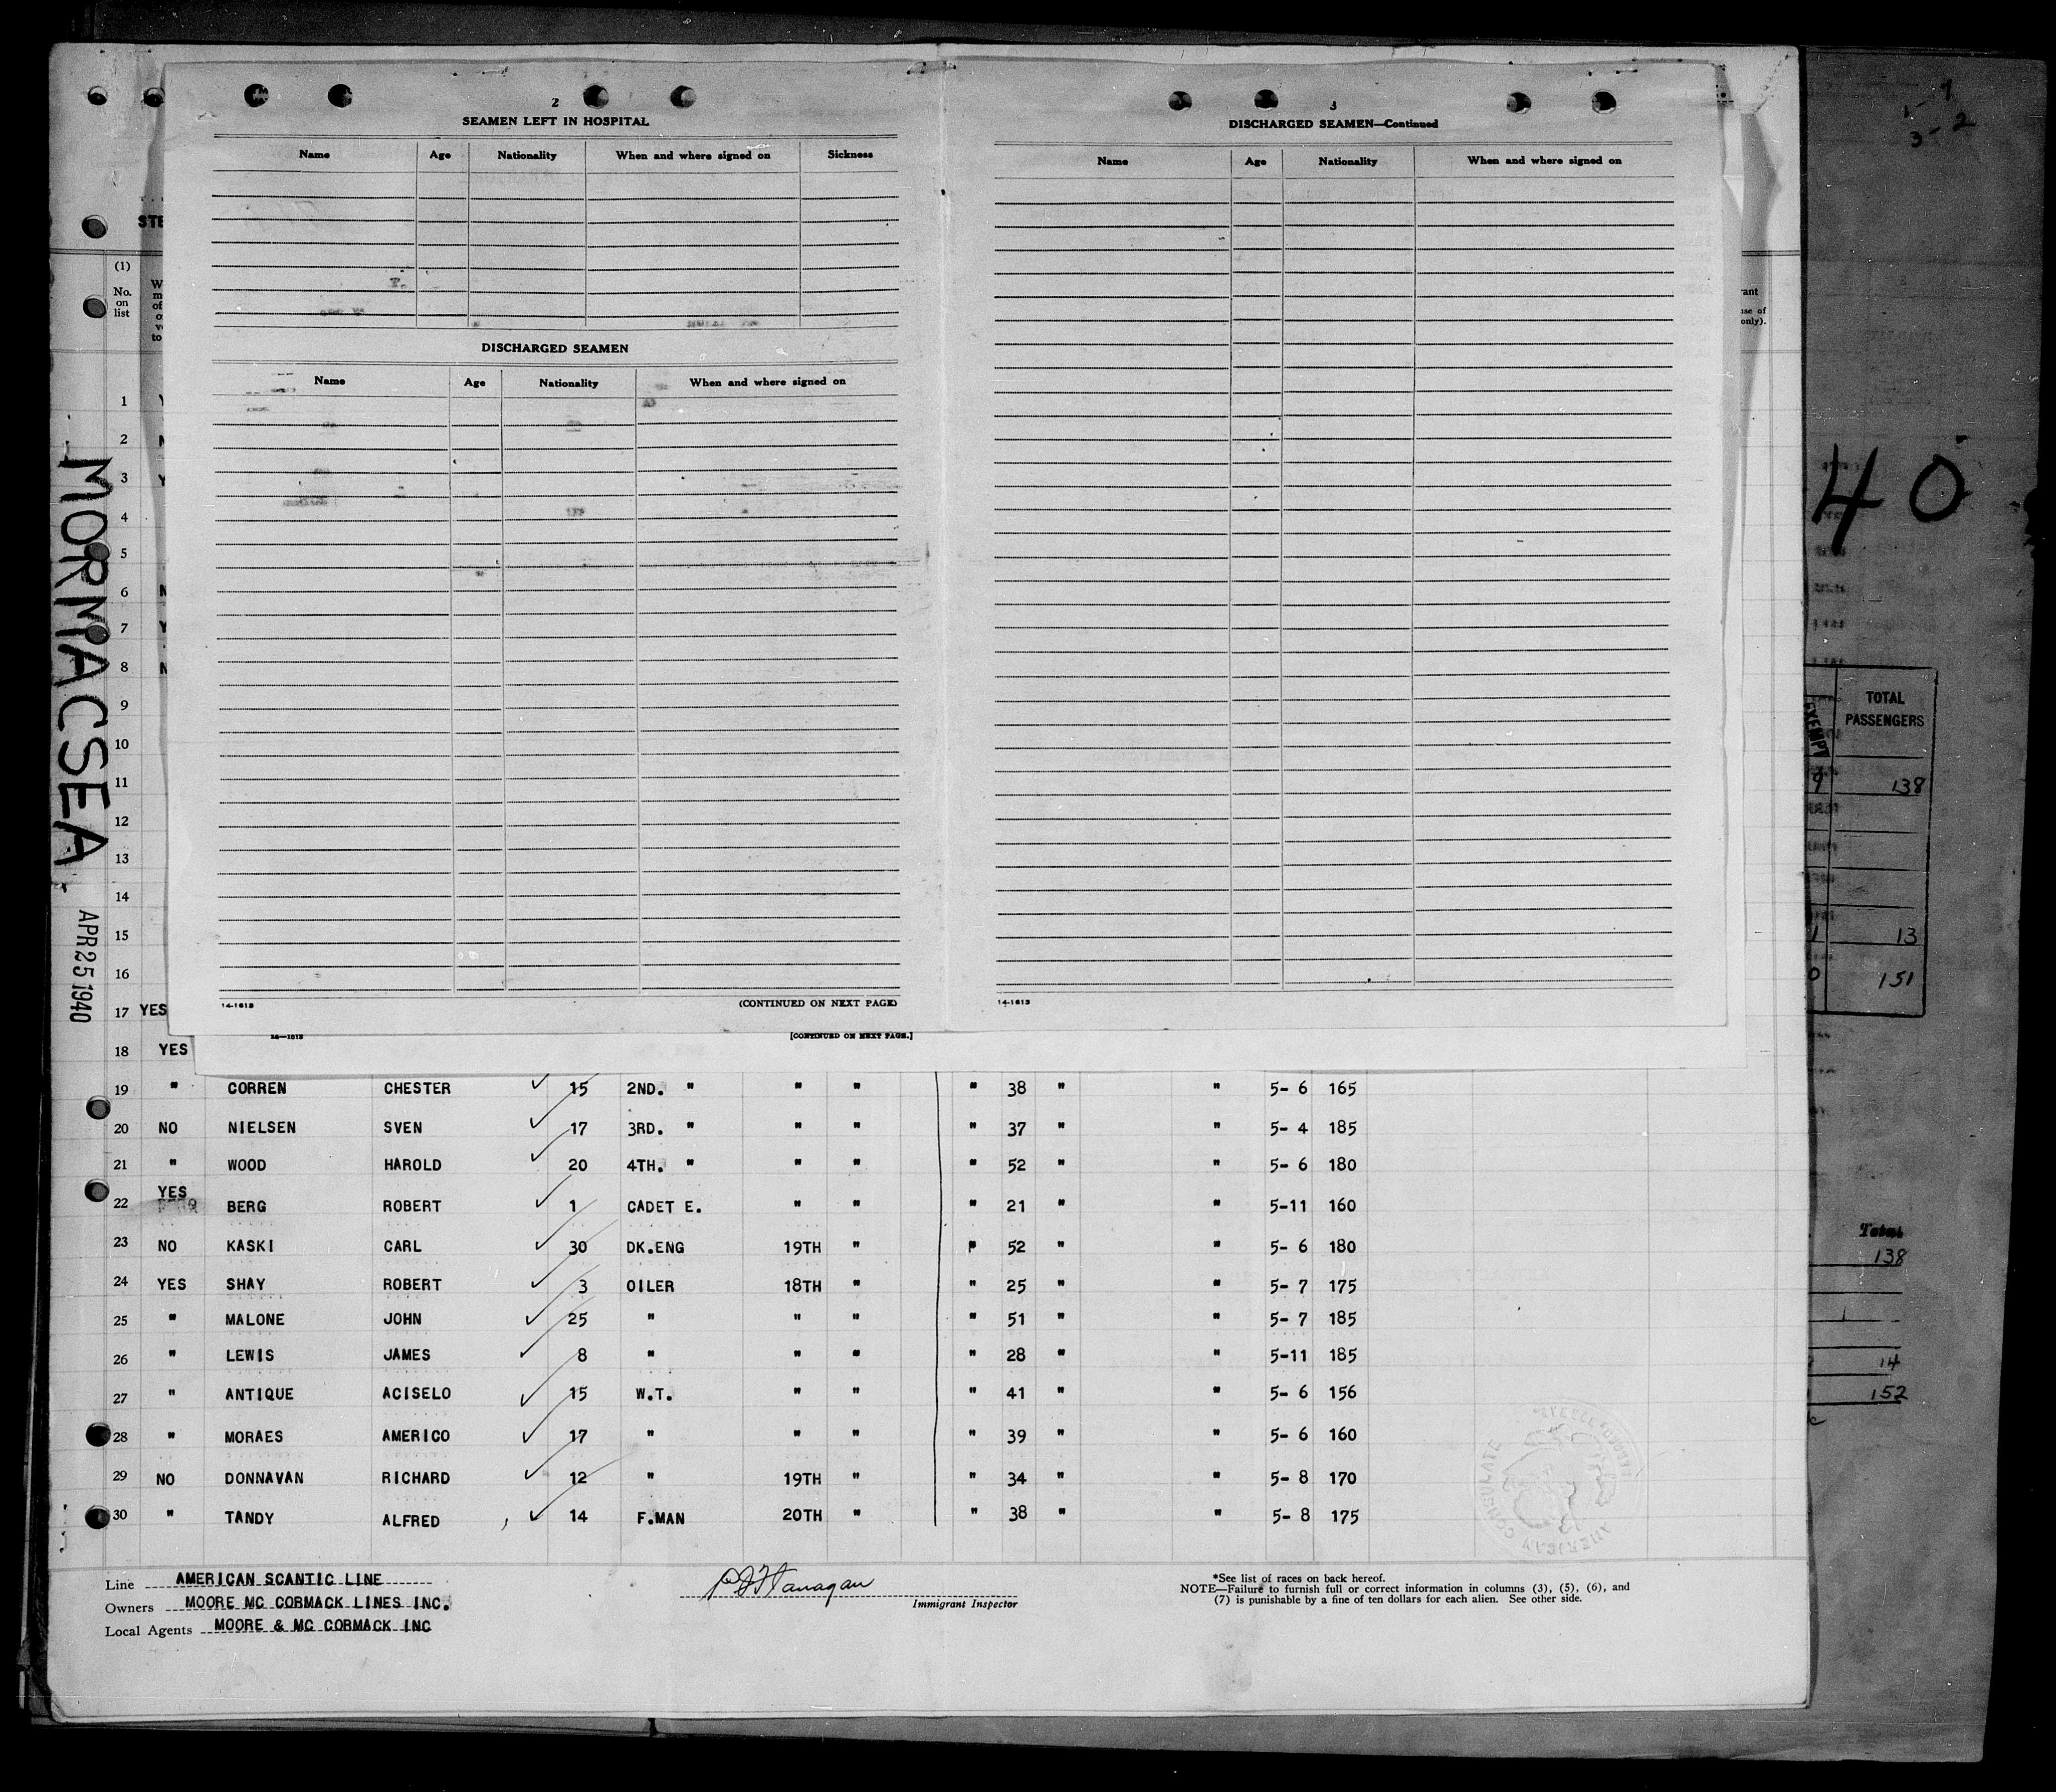 2
SEAMEN LEFT IN HOSPITAL
Name Age Nationality When and where signed on Sickness
DISCHARGED SEAMEN
Name Age Nationality When and where signed on
14-1613 (CONTINUED ON NEXT PAGE)
3
DISCHARGED SEAMEN—Continued
Name Age Nationality When and where signed on
14-1613
1- 7
3- 2
40
(1)
No.
on
list
rant
use of
only).
STE
MORMACSEA
APR 25 1940
1 Y
2 N
3 Y
4
5
6 N
7 Y
8 N
9
10
11
12
13
14
15
16
17 YES
14-1613 [CONTINUED ON NEXT PAGE.]
18 YES
19 " CORREN CHESTER ✓ 15 2ND. " " " " 38 " " 5- 6 165
20 NO NIELSEN SVEN ✓ 17 3RD. " " " " 37 " " 5- 4 185
21 " WOOD HAROLD ✓ 20 4TH. " " " " 52 " " 5- 6 180
22 YES BERG ROBERT ✓ 1 CADET E. " " " 21 " " 5-11 160
23 NO KASKI CARL ✓ 30 DK.ENG 19TH " " 52 " " 5- 6 180
24 YES SHAY ROBERT ✓ 3 OILER 18TH " " 25 " " 5- 7 175
25 " MALONE JOHN ✓ 25 " " " " 51 " " 5- 7 185
26 " LEWIS JAMES ✓ 8 " " " " 28 " " 5-11 185
27 " ANTIQUE ACISELO ✓ 15 W.T. " " " 41 " " 5- 6 156
28 " MORAES AMERICO ✓ 17 " " " " 39 " " 5- 6 160
29 NO DONNAVAN RICHARD ✓ 12 " 19TH " " 34 " " 5- 8 170
30 " TANDY ALFRED ✓ 14 F.MAN 20TH " " 38 " " 5- 8 175
Line AMERICAN SCANTIC LINE
Owners MOORE MC CORMACK LINES INC.
Local Agents MOORE & MC CORMACK INC
Flanagan
Immigrant Inspector
*See list of races on back hereof.
NOTE—Failure to furnish full or correct information in columns (3), (5), (6), and
(7) is punishable by a fine of ten dollars for each alien. See other side.
AMERICAN CONSULATE
EXEMPT
TOTAL
PASSENGERS
9 138
1 13
0 151
Total
138
1
14
152